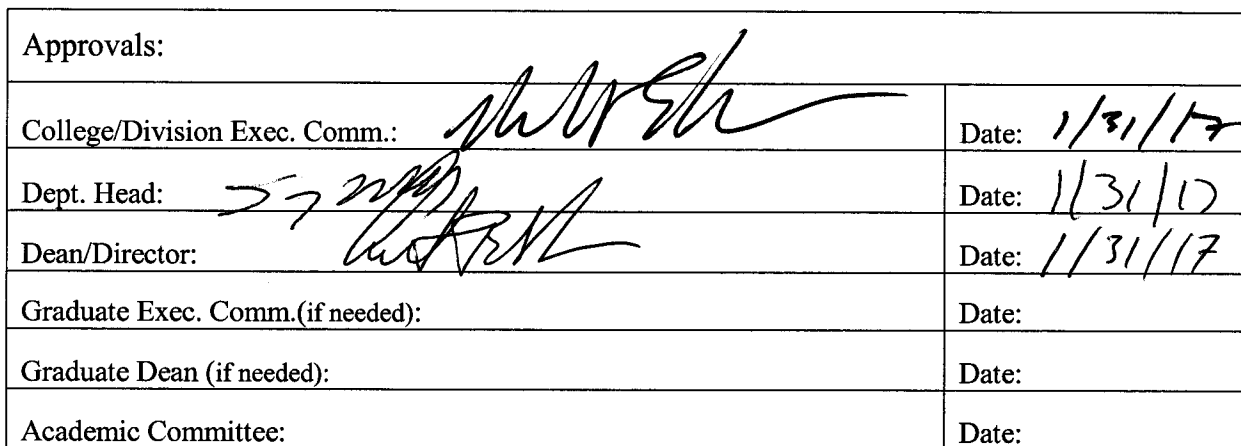 Approvals:
College/Division Exec. Comm.: Date: 1/31/17
Dept. Head: Date: 1/31/17
Dean/Director: Date: 1/31/17
Graduate Exec. Comm.(if needed): Date:
Graduate Dean (if needed): Date:
Academic Committee: Date: